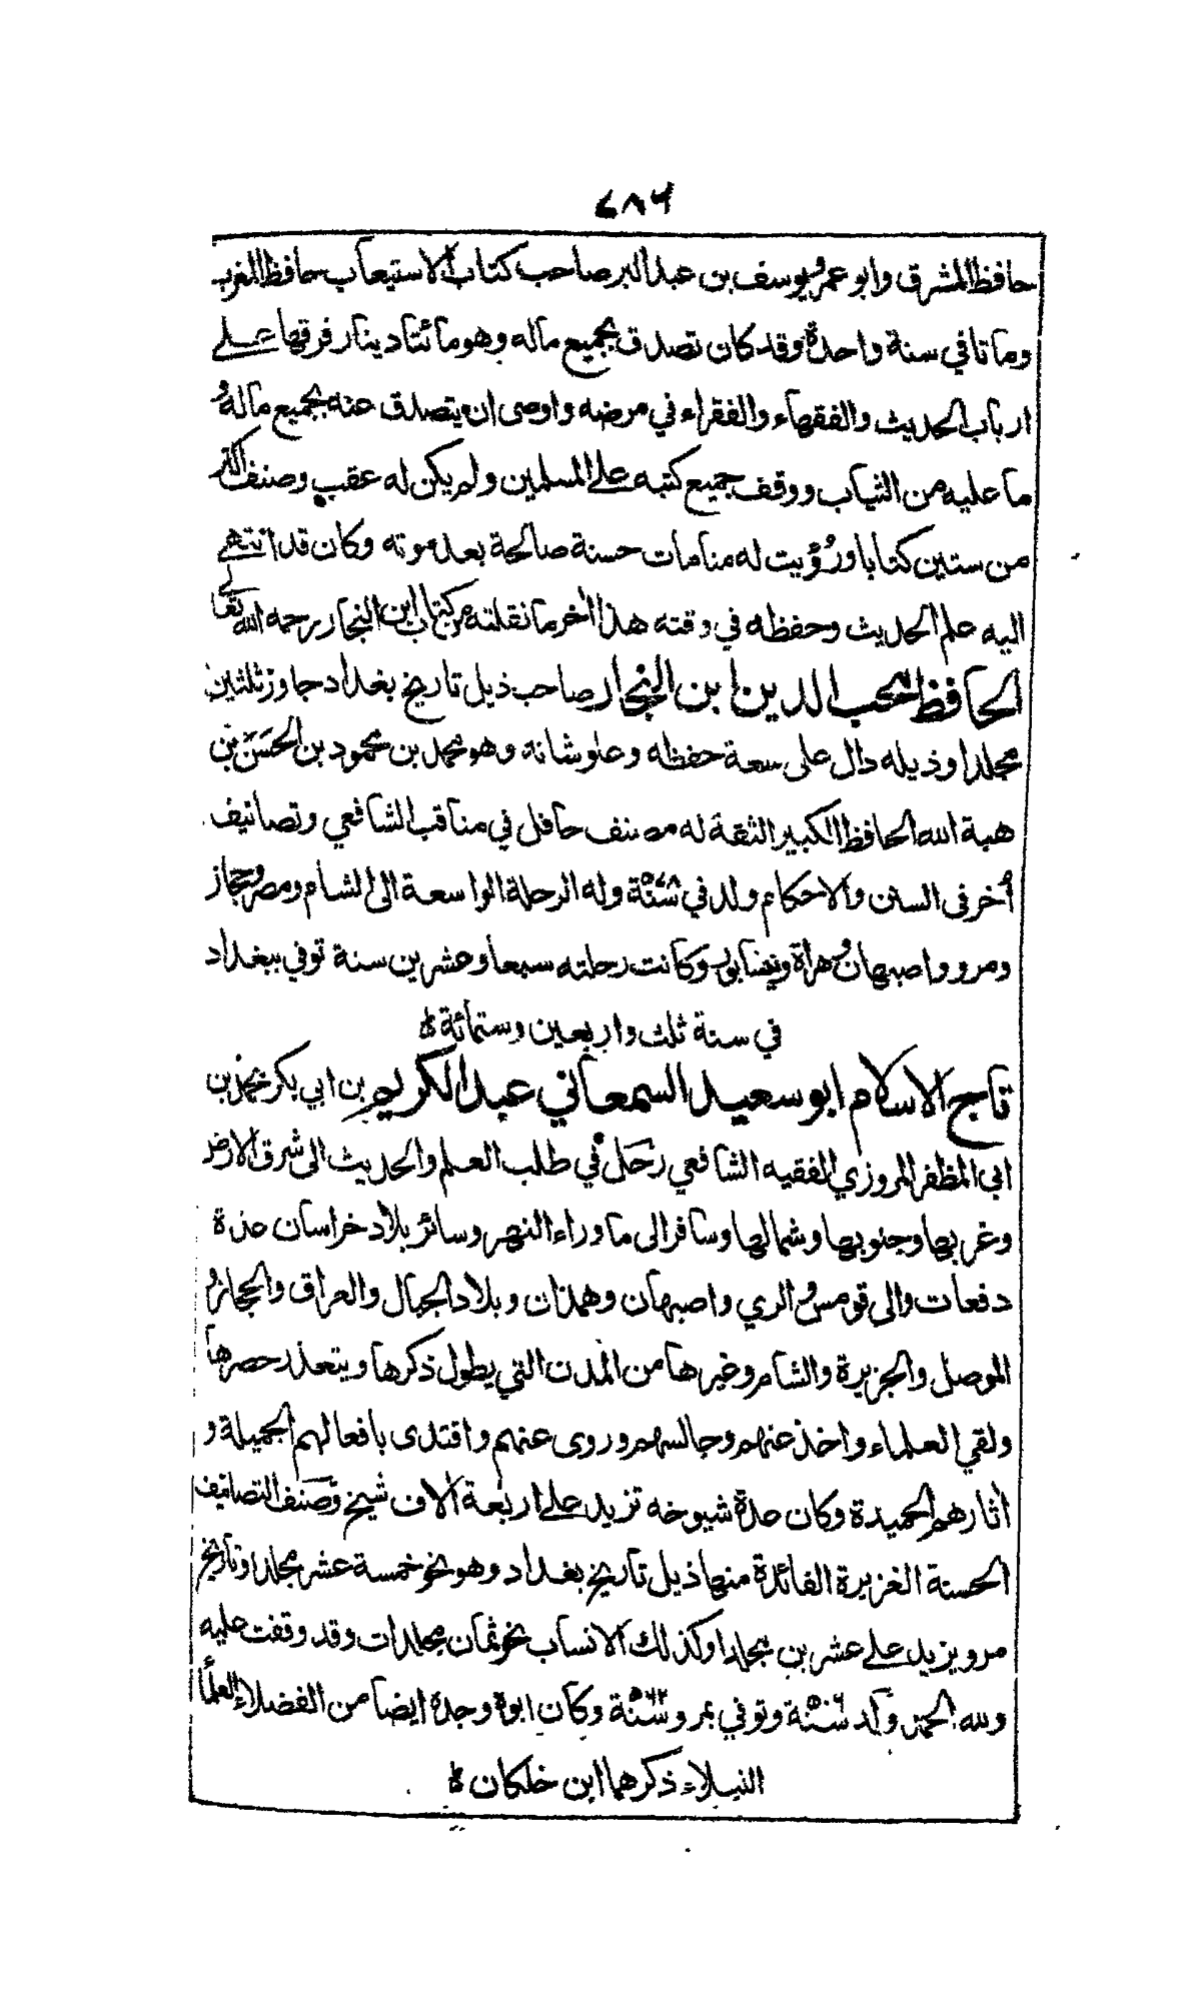 ٤٨٦
حافظ المشرق وابو عمر ويوسف بن عبد البر صاحب كتاب الاستيعاب حافظ المغرب
وماتا في سنة واحدة وقد كان تصدق بجميع ماله وهو مائتا دينار فرقها على
ارباب الحديث والفقهاء والفقراء في مرضه واوصى ان يتصدق عنه بجميع ماله و
ما عليه من الثياب ووقف جميع كتبه على المسلمين ولم يكن له عقب وصنف اكثر
من ستين كتابا ورُؤيت له منامات حسنة صالحة بعد موته وكان قد انتهى
اليه علم الحديث وحفظه في وقته هذا آخر ما نقلته من كتاب ابن النجار رحمه الله تعالى
الحافظ محب الدين ابن النجار صاحب ذيل تاريخ بغداد جاوز ثلثين
مجلدا وذيله دال على سعة حفظه وعلو شانه وهو محمد بن محمود بن الحسن بن
هبة الله الحافظ الكبير الثقة له مصنف حافل في مناقب الشافعي وتصانيف
أخر في السنن والاحكام ولد في سنة ٥٧٨ وله الرحلة الواسعة الى الشام ومصر وحجاز
ومرو واصبهان وهراة ونيشابور وكانت رحلته سبعا وعشرين سنة توفي ببغداد
في سنة ثلث واربعين وستمائة
تاج الاسلام ابو سعيد السمعاني عبد الكريم بن ابي بكر محمد بن
ابي المظفر المروزي الفقيه الشافعي رَحَل في طلب العلم والحديث الى شرق الارض
وغربها وجنوبها وشمالها وسافر الى ما وراء النهر وسائر بلاد خراسان عدة
دفعات والى قومس والري واصبهان وهمذان وبلاد الجبال والعراق والحجاز و
الموصل والجزيرة والشام وغيرها من المدن التي يطول ذكرها ويتعذر حصرها
ولقي العلماء واخذ عنهم وجالسهم وروى عنهم واقتدى بافعالهم الجميلة و
آثارهم الحميدة وكان عدة شيوخه تزيد على اربعة آلاف شيخ وصَنف التصانيف
الحسنة الغزيرة الفائدة منها ذيل تاريخ بغداد وهو نحو خمسة عشر مجلدا وتاريخ
مرو يزيد على عشرين مجلدا وكذلك الانساب نحو ثمان مجلدات وقد وقفت عليه
ولله الحمد وُلد سنة ٥٠٦ وتوفي بمرو سنة ٥٦٢ وكان ابوه وجده ايضا من الفضلاء العلماء
النبلاء ذكرهما ابن خلكان